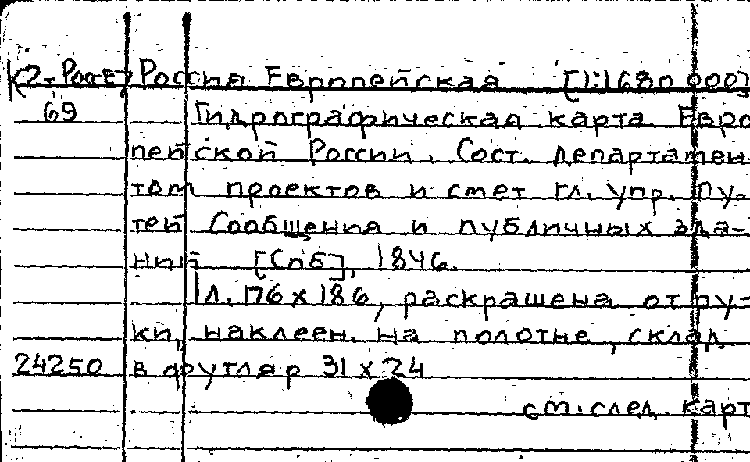 К2-Росс Россия Европейская [1:1680 000]
69 Гидрографическая карта Евро
пейской России. Сост. департамен
том проектов и смет гл. упр. пу-
тей Сообщения и публичных зда-
ний [Спб], 1846.
1 л. 176 x 186, раскрашена от ру-
ки, наклеен. на полотне, склад.
24250 в футляр 31 x 24
см. след. карт